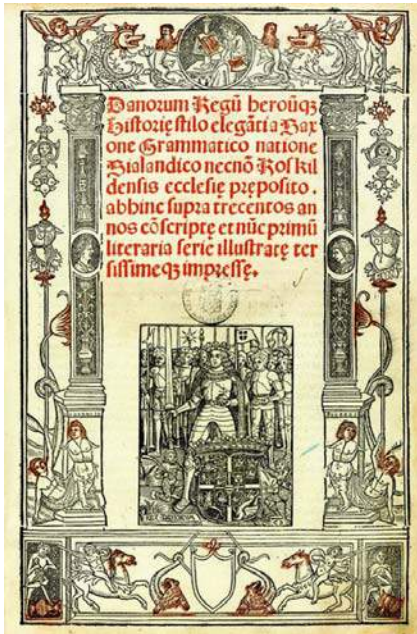 Danorum Regū heroūqꝫ
Historię stilo elegāti a Sax
one Grammatico natione
Sialandico necnō Roskil
densis ecclesię pręposito,
abhinc supra trecentos an
nos cōscriptę et nūc primū
literaria serie illustratę ter
sissimeqꝫ impressę.